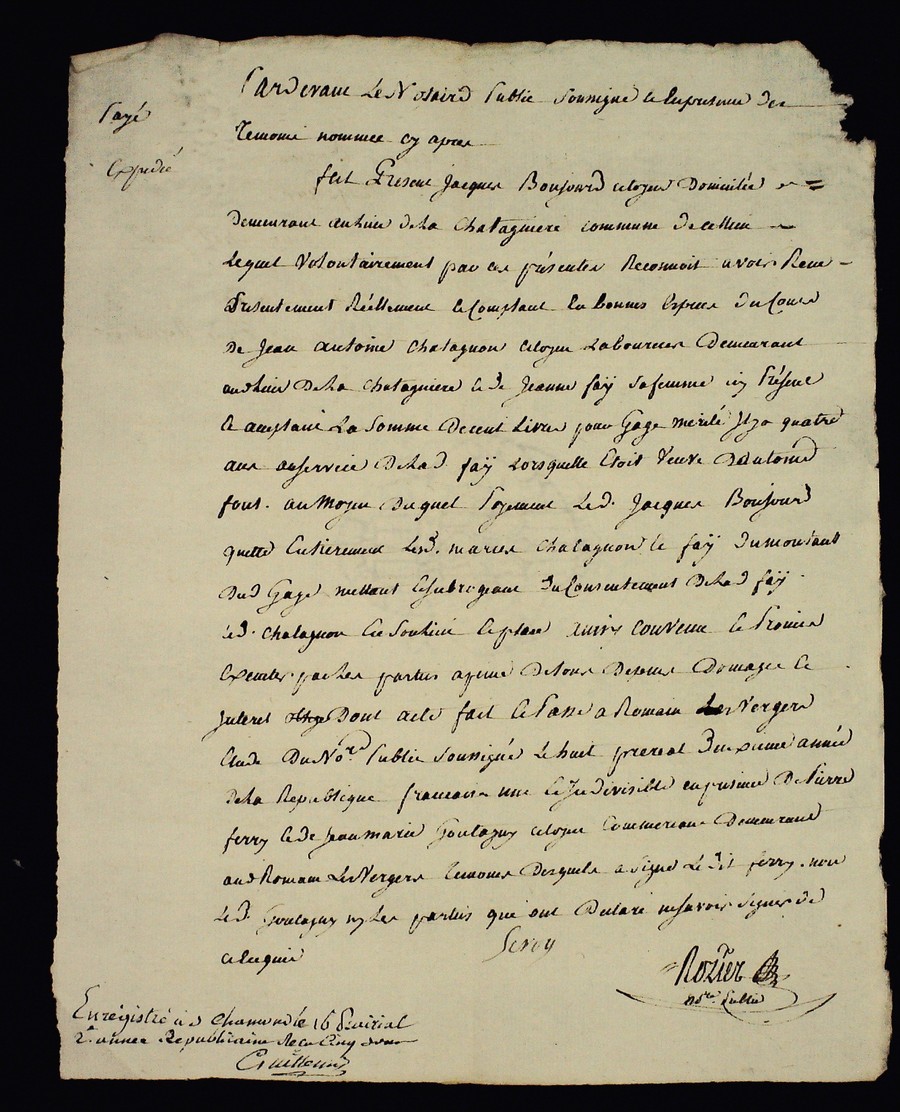 Payé
Expedié
Pardevant Le Notaire Public Soussigné et En presence des
Temoins nommés cy apres
fut Present Jacques Boujourd citoyen Domicilié et
Demeurant au Lieu de La Chatagniere commune de cellieu
Lequel Volontairement par ces présentes Reconnoit avoir Receu
Présentement Réellement et Comptant En bonnes Espèces du Cours
De Jean Antoine Chatagnon citoyen Laboureur Demeurant
aud Lieu De La Chatagniere et de Jeanne faÿ sa femme icy Présent
et aceptant La Somme De cent Livres pour Gage mérité Il y a quatre
ans au service De Lad faÿ Lorsquelle Etoit Veuve D'antoine
font. au Moyen Duquel Payement Led. Jacques Boujourd
quitte Entierement Lesd. mariés Chatagnon et faÿ Du montant
Dud Gage mettant et Subrogeant Du Consentement De Lad faÿ
Led. Chatagnon En Son Lieu et place Ainsy Convenu et Promis
Executer par Les parties a peine De tous Depens Domages et
Interet Dont acte fait et Passé a Romain Les Vergers
Etude Du No.re Public Soussigné Le huit prereal Deuxieme année
De La Republique francoise une et Indivisible en presence De Pierre
ferry et de Jean Marie Goutagny citoyen Commercant Demeurant
aud Romain Les Vergers Temoins Desquels a signé Le Dit ferry. non
Led. Goutagny ny Les parties qui ont Declaré ne Savoir Signer de
ce Requis
ferry
Rozier
no.re Public
Enregistré à S Chamond le 16 Prairial
2.e année Republicaine Recu Cinq sous